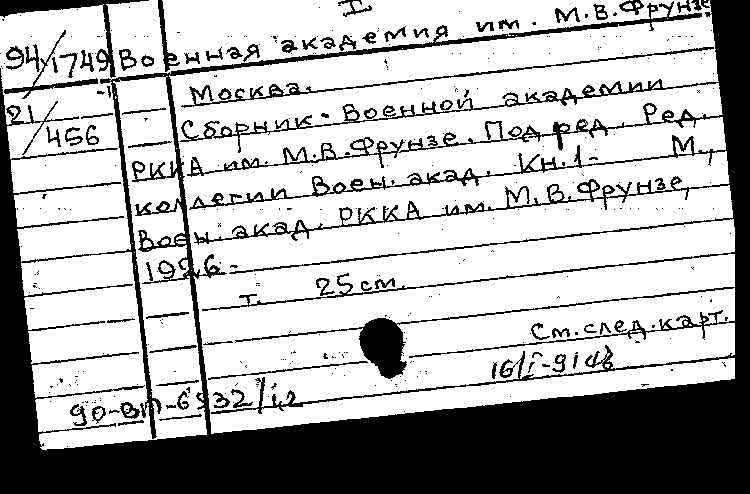 I
94/1749 Военная академия им. М.В.Фрунзе
-1 Москва.
21/456 Сборник. Военной академии
РККА им. М.В.Фрунзе. Под ред. Ред.
коллегии Воен. акад. Кн.1- М.,
Воен. акад. РККА им. М.В.Фрунзе,
1926-
т. 25 см.
См.след.карт.
90-ВП-6932/1,2